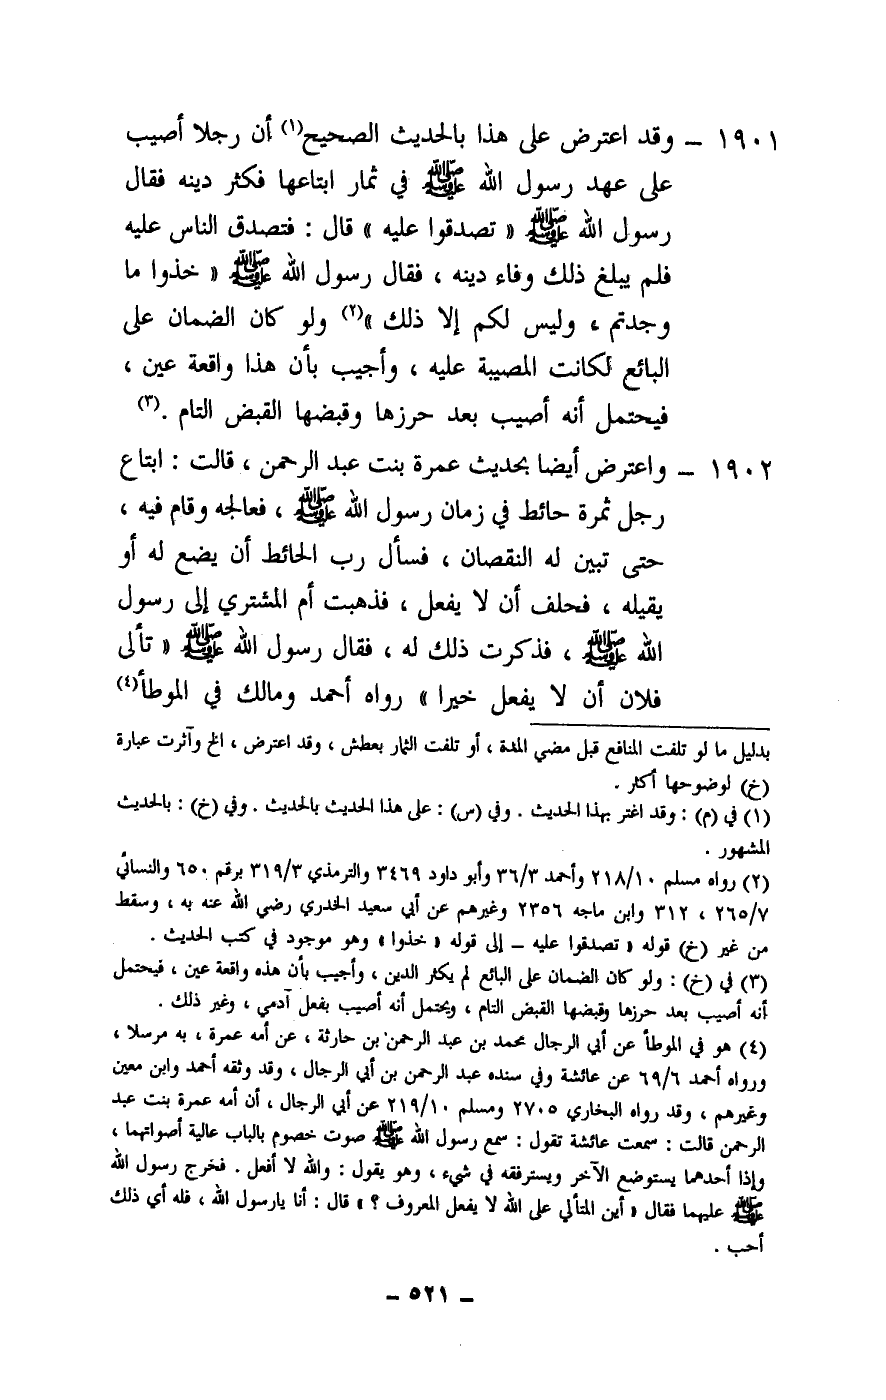 ١٩٠١ ــ وقد اعترض على هذا بالحديث الصحيح(١) أن رجلا أصيب
على عهد رسول الله ﷺ في ثمار ابتاعها فكثر دينه فقال
رسول الله ﷺ « تصدقوا عليه » قال : فتصدق الناس عليه
فلم يبلغ ذلك وفاء دينه ، فقال رسول الله ﷺ « خذوا ما
وجدتم ، وليس لكم إلا ذلك »(٢) ولو كان الضمان على
البائع لكانت المصيبة عليه ، وأجيب بأن هذا واقعة عين ،
فيحتمل أنه أصيب بعد حرزها وقبضها القبض التام .(٣)
١٩٠٢ ــ واعترض أيضا بحديث عمرة بنت عبد الرحمن ، قالت : ابتاع
رجل ثمرة حائط في زمان رسول الله ﷺ ، فعالجه وقام فيه ،
حتى تبين له النقصان ، فسأل رب الحائط أن يضع له أو
يقيله ، فحلف أن لا يفعل ، فذهبت أم المشتري إلى رسول
الله ﷺ ، فذكرت ذلك له ، فقال رسول الله ﷺ « تألى
فلان أن لا يفعل خيرا » رواه أحمد ومالك في الموطأ(٤)
بدليل ما لو تلفت المنافع قبل مضي المدة ، أو تلفت الثمار بعطش ، وقد اعترض ، الخ وآثرت عبارة
(خ) لوضوحها أكثر .
(١) في (م) : وقد اغتر بهذا الحديث . وفي (س) : على هذا الحديث بالحديث . وفي (خ) : بالحديث
المشهور .
(٢) رواه مسلم ٢١٨/١٠ وأحمد ٣٦/٣ وأبو داود ٣٤٦٩ والترمذي ٣١٩/٣ برقم ٦٥٠ والنسائي
٢٦٥/٧ ، ٣١٢ وابن ماجه ٢٣٥٦ وغيرهم عن أبي سعيد الخدري رضي الله عنه به ، وسقط
من غير (خ) قوله « تصدقوا عليه ــ إلى قوله « خذوا » وهو موجود في كتب الحديث .
(٣) في (خ) : ولو كان الضمان على البائع لم يكثر الدين ، وأجيب بأن هذه واقعة عين ، فيحتمل
أنه أصيب بعد حرزها وقبضها القبض التام ، ويحتمل أنه أصيب بفعل آدمي ، وغير ذلك .
(٤) هو في الموطأ عن أبي الرجال محمد بن عبد الرحمن بن حارثة ، عن أمه عمرة ، به مرسلا ،
ورواه أحمد ٦٩/٦ عن عائشة وفي سنده عبد الرحمن بن أبي الرجال ، وقد وثقه أحمد وابن معين
وغيرهم ، وقد رواه البخاري ٢٧٠٥ ومسلم ٢١٩/١٠ عن أبي الرجال ، أن أمه عمرة بنت عبد
الرحمن قالت : سمعت عائشة تقول : سمع رسول الله ﷺ صوت خصوم بالباب عالية أصواتهما ،
وإذا أحدهما يستوضع الآخر ويسترفقه في شيء ، وهو يقول : والله لا أفعل . فخرج رسول الله
ﷺ عليهما فقال « أين المتألي على الله لا يفعل المعروف ؟ » قال : أنا يارسول الله ، فله أي ذلك
أحب .
ــ ٥٢١ ــ